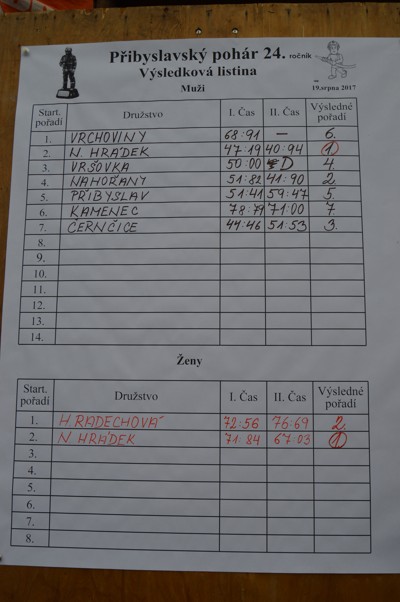 Přibyslavský pohár 24. ročník
Výsledková listina
Muži
19.srpna 2017
Start. pořadí Družstvo I. Čas II. Čas Výsledné pořadí
1. VRCHOVINY 68:91 — 6.
2. N. HRÁDEK 47:19 40:94 1
3. VRŠOVKA 50:00 D 4.
4. NAHOŘANY 51:82 41:90 2.
5. PŘIBYSLAV 51:41 59:47 5.
6. KAMENEC 78:79 71:00 7
7. ČERNČICE 44:46 51:53 3.
8.
9.
10.
11.
12.
13.
14.
Ženy
Start. pořadí Družstvo I. Čas II. Čas Výsledné pořadí
1. HRADECHOVÁ 72:56 76:69 2.
2. N. HRÁDEK 71:84 67:03 1
3.
4.
5.
6.
7.
8.